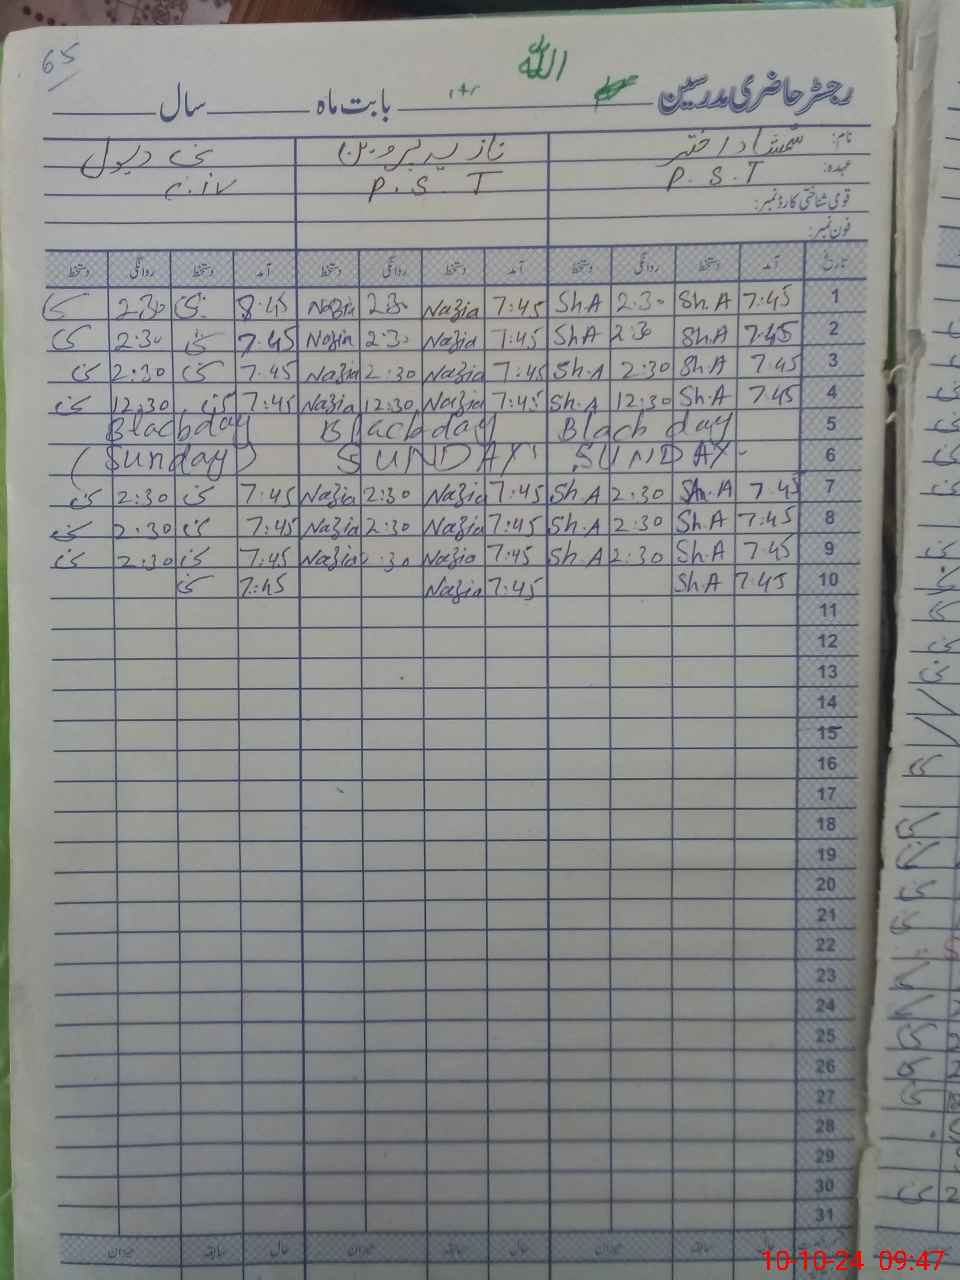 65
الله
رجسٹر حاضری مدرسین بابت ماہ سال
نام: شمشاد اختر نازیہ پروین
عہدہ: P.S.T P.S.T C.IV
قومی شناختی کارڈ نمبر:
فون نمبر:
تاریخ آمد دستخط روانگی دستخط آمد دستخط روانگی دستخط آمد دستخط روانگی دستخط
1 7:45 Sh.A 2:30 Sh.A 7:45 Nazia 2:30 Nazia 8:45 2:30
2 7:45 Sh.A 2:30 Sh.A 7:45 Nazia 2:30 Nazia 7:45 2:30
3 7:45 Sh.A 2:30 Sh.A 7:45 Nazia 2:30 Nazia 7:45 2:30
4 7:45 Sh.A 12:30 Sh.A 7:45 Nazia 12:30 Nazia 7:45 12:30
5 Black day Black day Black day
6 SUNDAY SUNDAY (Sunday)
7 7:45 Sh.A 2:30 Sh.A 7:45 Nazia 2:30 Nazia 7:45 2:30
8 7:45 Sh.A 2:30 Sh.A 7:45 Nazia 2:30 Nazia 7:45 2:30
9 7:45 Sh.A 2:30 Sh.A 7:45 Nazia 2:30 Nazia 7:45 2:30
10 7:45 Sh.A 7:45 Nazia 7:45
11
12
13
14
15
16
17
18
19
20
21
22
23
24
25
26
27
28
29
30
31
حال سابقہ میزان حال سابقہ میزان حال سابقہ میزان
10-10-24 09:47